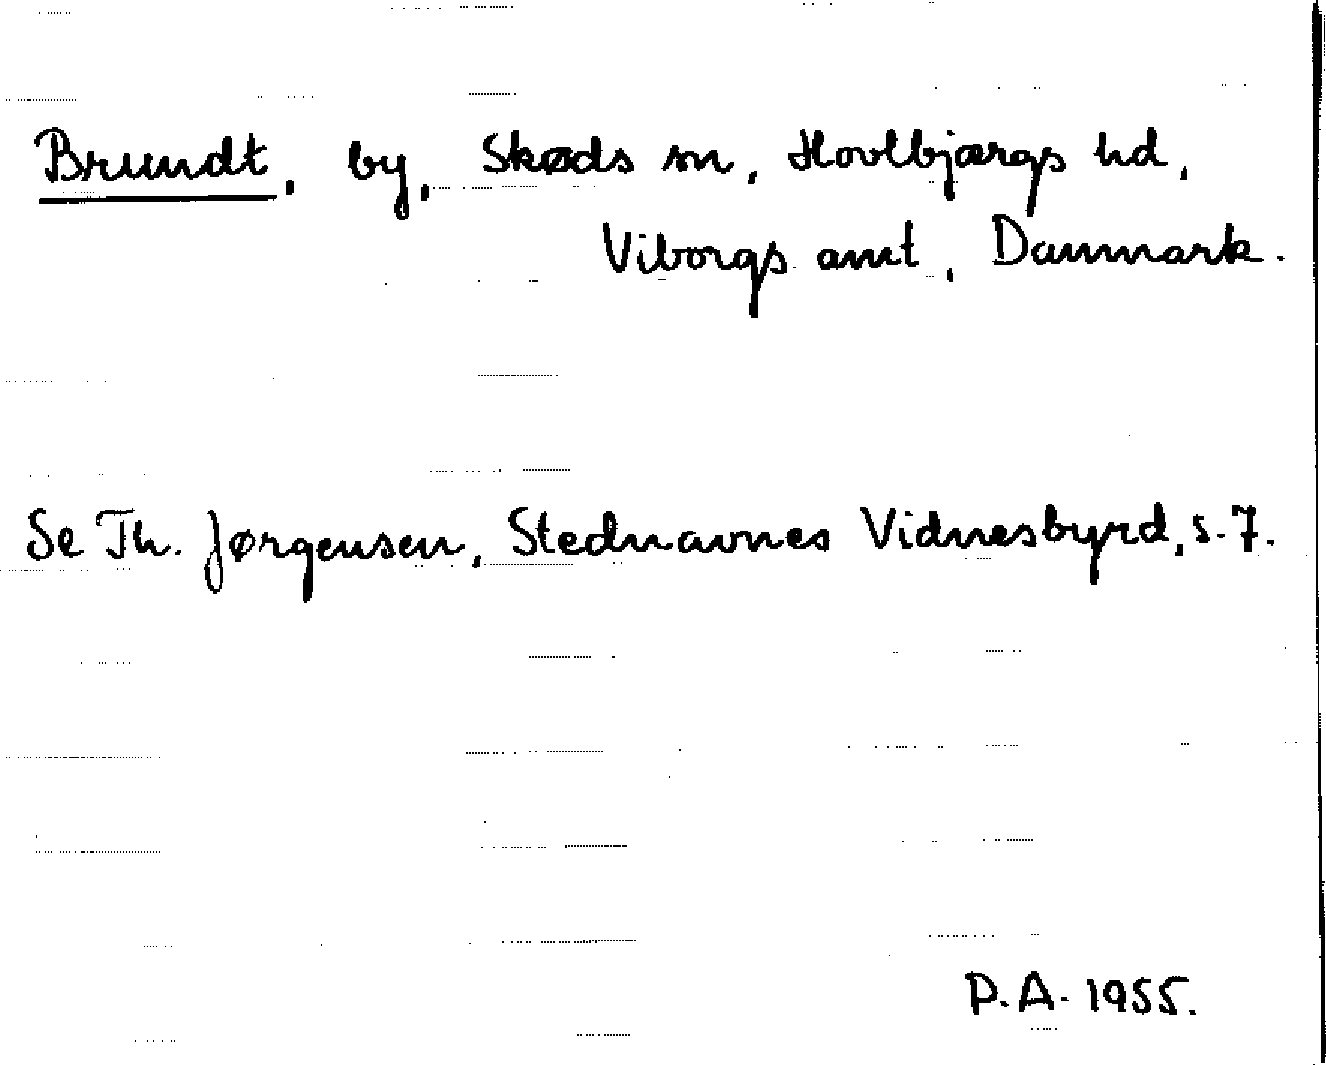 Brundt, by, Skøds sn, Hovlbjærgs hd,
Viborgs amt, Danmark.
Se Th. Jørgensen, Stednavnes Vidnesbyrd, s. 7.
P.A. 1955.